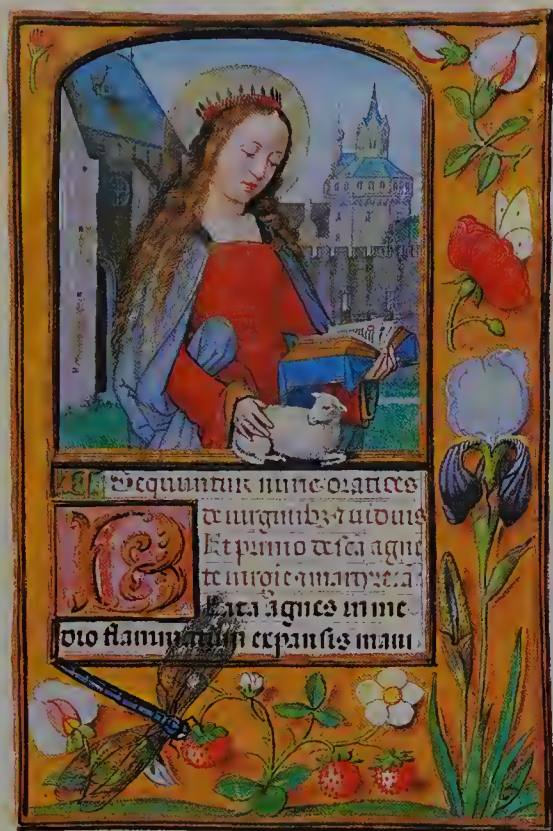 Sequuntur nunc orationes
de virginibz ⁊ viduis
Et primo de sca agne
te virgie ⁊ martyre a
Beata agnes in me
dio flammarum expansis mani